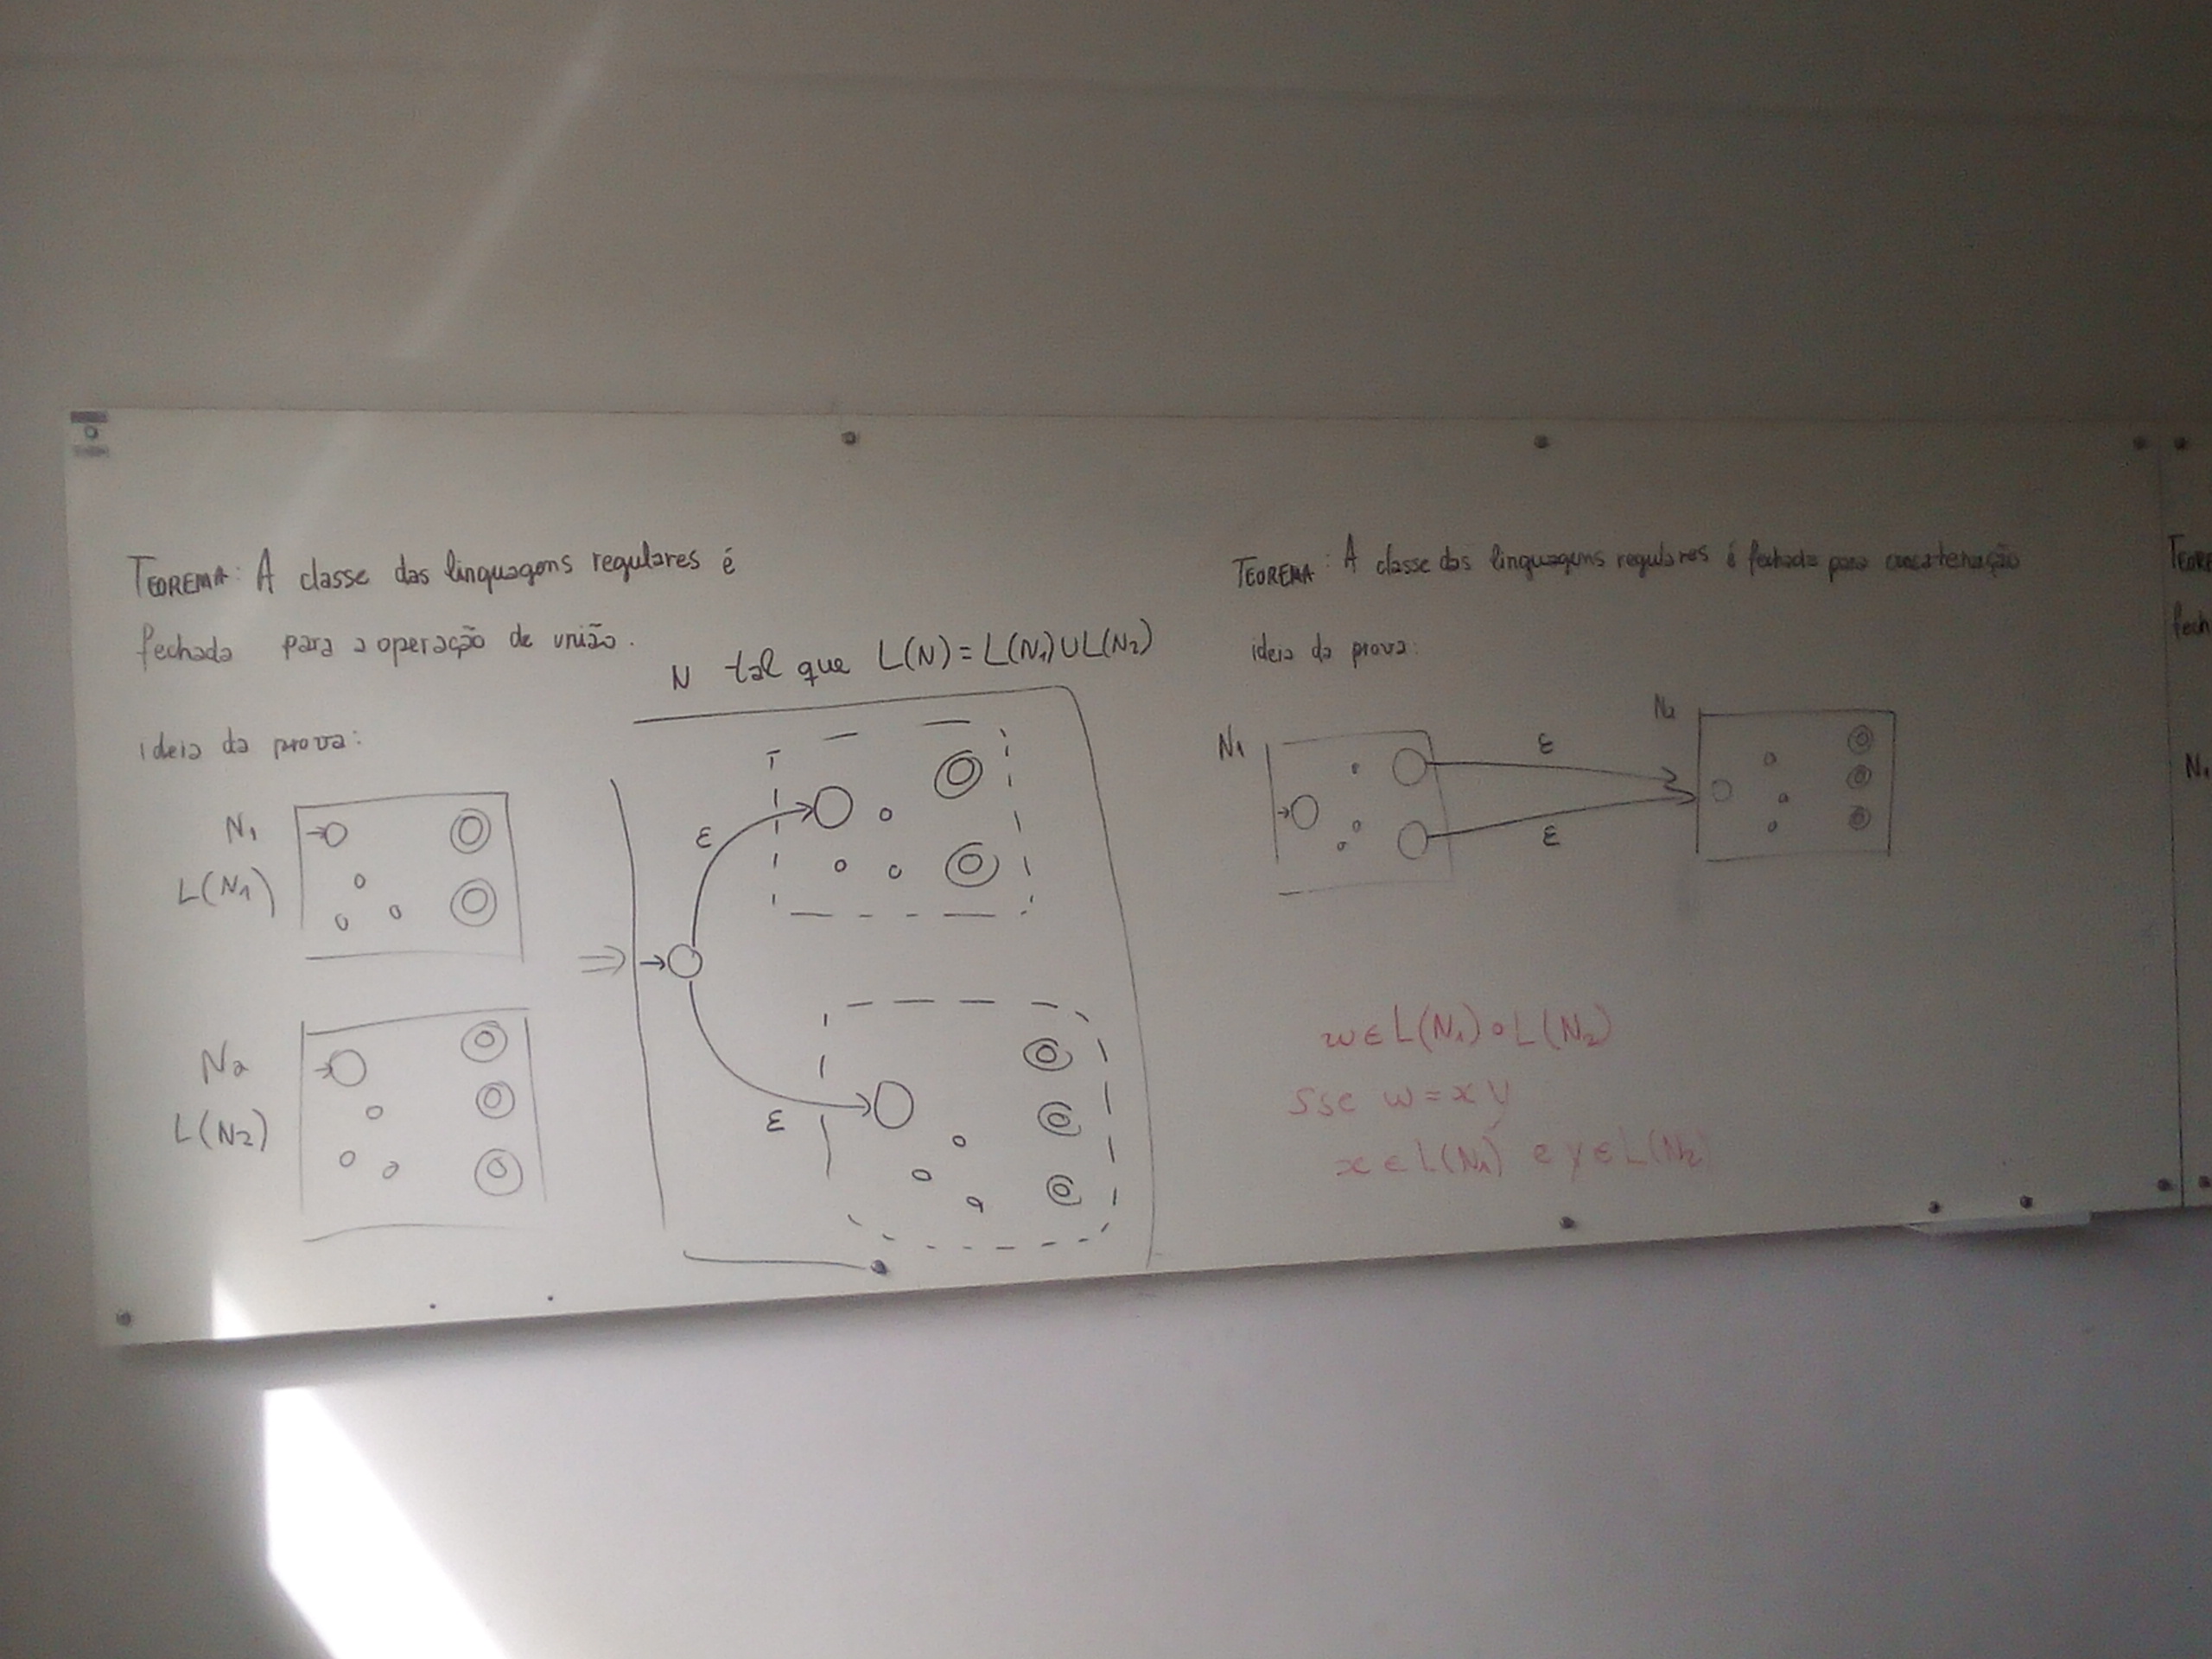 TEOREMA: A classe das linguagens regulares é
fechada para a operação de união.
N tal que L(N) = L(N₁) U L(N₂)
ideia da prova:
N₁
L(N₁)
N₂
L(N₂)
⇒
ε
ε
TEOREMA: A classe das linguagens regulares é fechada para concatenação
ideia da prova:
N₁
N₂
ε
ε
w ∈ L(N₁) ∘ L(N₂)
sse w = x y
x ∈ L(N₁) e y ∈ L(N₂)
TEORE
fech
N₁